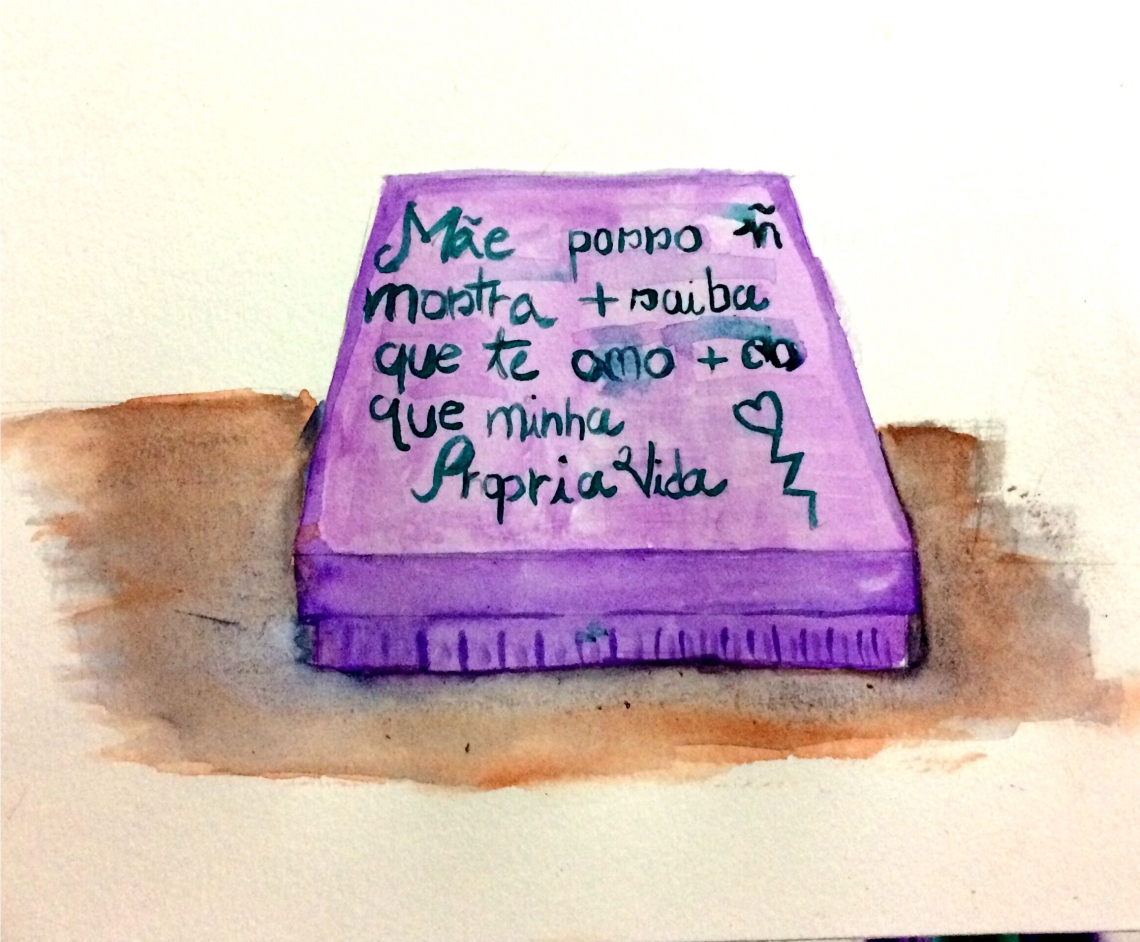 Mãe posso ñ
mostra + saiba
que te amo + do
que minha
Propria Vida